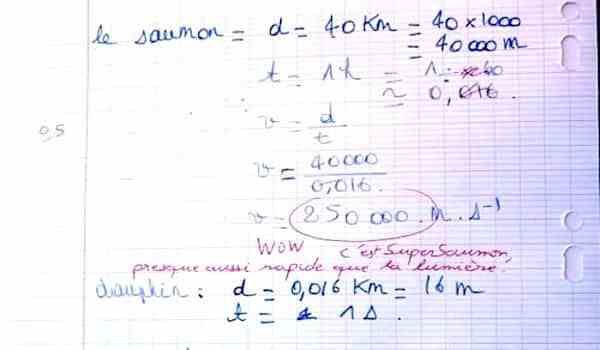 le saumon = d = 40 Km = 40 x 1000
= 40 000 m
t = 1h = 1 : 60
≈ 0,016.
v = d/t
0,5
v = 40000/0,016.
v = 250 000. m. s⁻¹
Wow c'est SuperSaumon,
presque aussi rapide que la lumière.
dauphin : d = 0,016 Km = 16 m
t = 1 s.